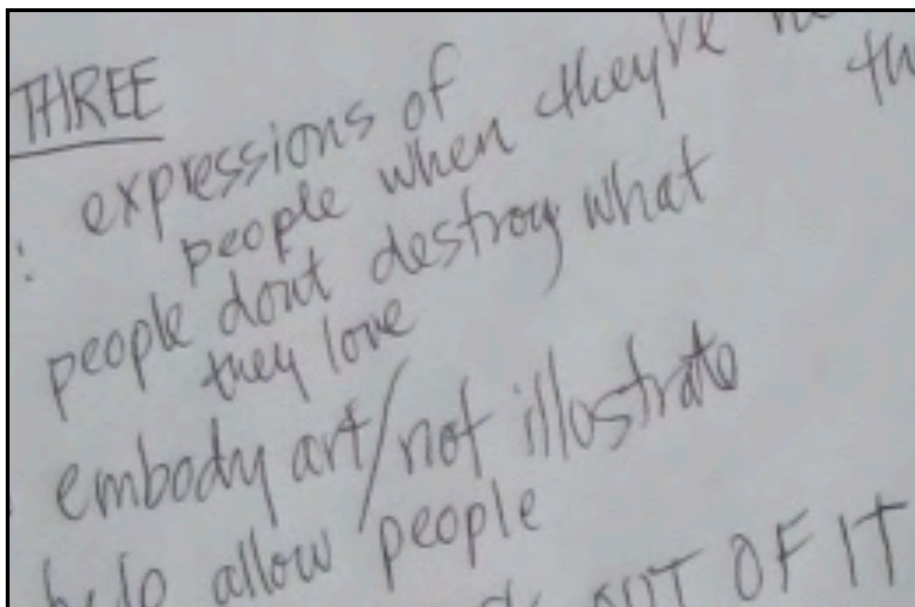 THREE
: expressions of
people when they're
people dont destroy what
they love
embody art/not illustrate
help allow people
OUT OF IT